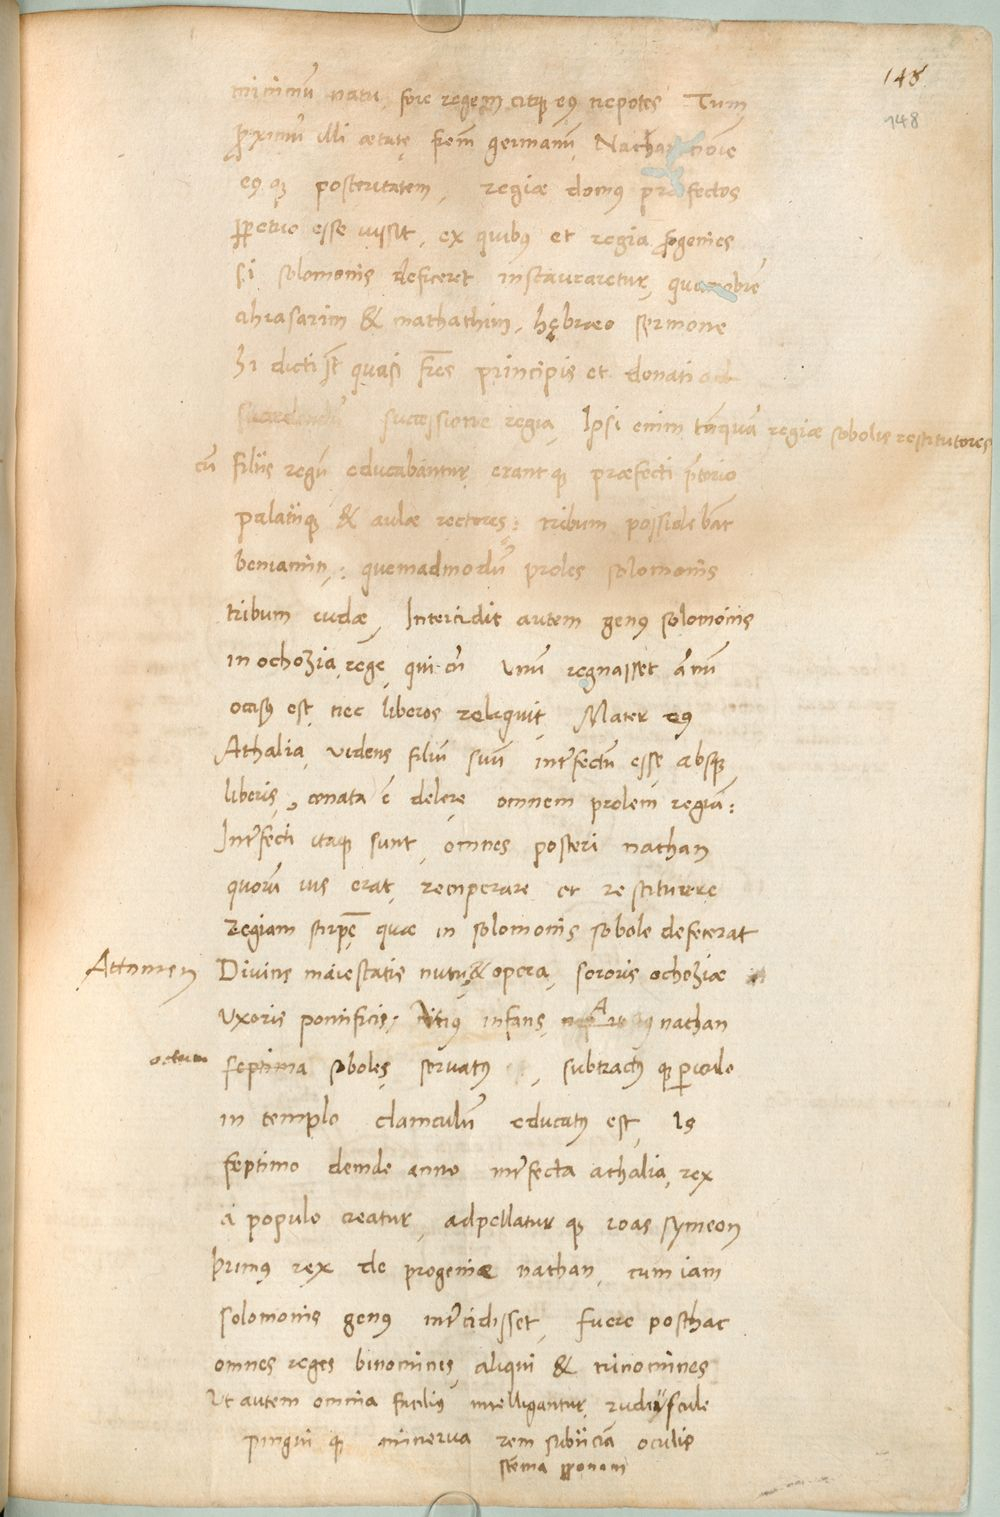 148
148
minimũ natu, fore regem eiusque eꝰ nepotes Tum
ꝓximũ illi aetate frẽm germanũ, Nathan noĩe
eꝰ qꝫ posteritatem, regiae domꝰ praefectos
ꝑpetuo esse iussit, ex quibꝰ et regia ꝓgenies
si solomonis deficeret instauraretur, quamobrẽ
ahiasarim & mathathim, hębraeo sermone
Hi dicti sũt quasi frẽs principis et donati
successione regia, Ipsi enim tãnquã regiae sobolis restitutores
cũ filiis regũ educabantur, erantqꝫ praefecti p̃torio
palatiiqꝫ & aulae rectores: tribum possidebãt
beniamin,: quemadmodũ proles solomonis
tribum iudae, Intercidit autem genꝰ solomonis
in ochoзia rege, qui cũ unũ regnasset annũ
occisꝰ est, nec liberos reliquit, Mater eꝰ
Athalia, videns filiũ suũ interfectũ esse, absqꝫ
liberis, conata ẽ delere omnem prolem regiã:
Interfecti itaqꝫ sunt, omnes posteri nathan
quorũ ius erat, recuperare et restituere
Regiam stirpẽ quae in solomonis sobole defecerat
Attamen Divine maiestatis nutu, & opera, sororis ochoзiae
Uxoris pontificis, infans, nathan
septima soboles, servatꝰ, subtractꝰqꝫ periculo
in templo clamculũ educatꝰ est, Is
septimo deinde anno interfecta athalia, rex
a populo creatur, adpellaturqꝫ ioas symeon
primꝰ rex de progenie nathan, cum iam
solomonis genꝰ intercidisset, fuere posthac
omnes reges binomines, aliqui & trinomines
Ut autem omnia facilius intelligantur, rudiuscule
pinguiqꝫ minerva rem subiiciã oculis